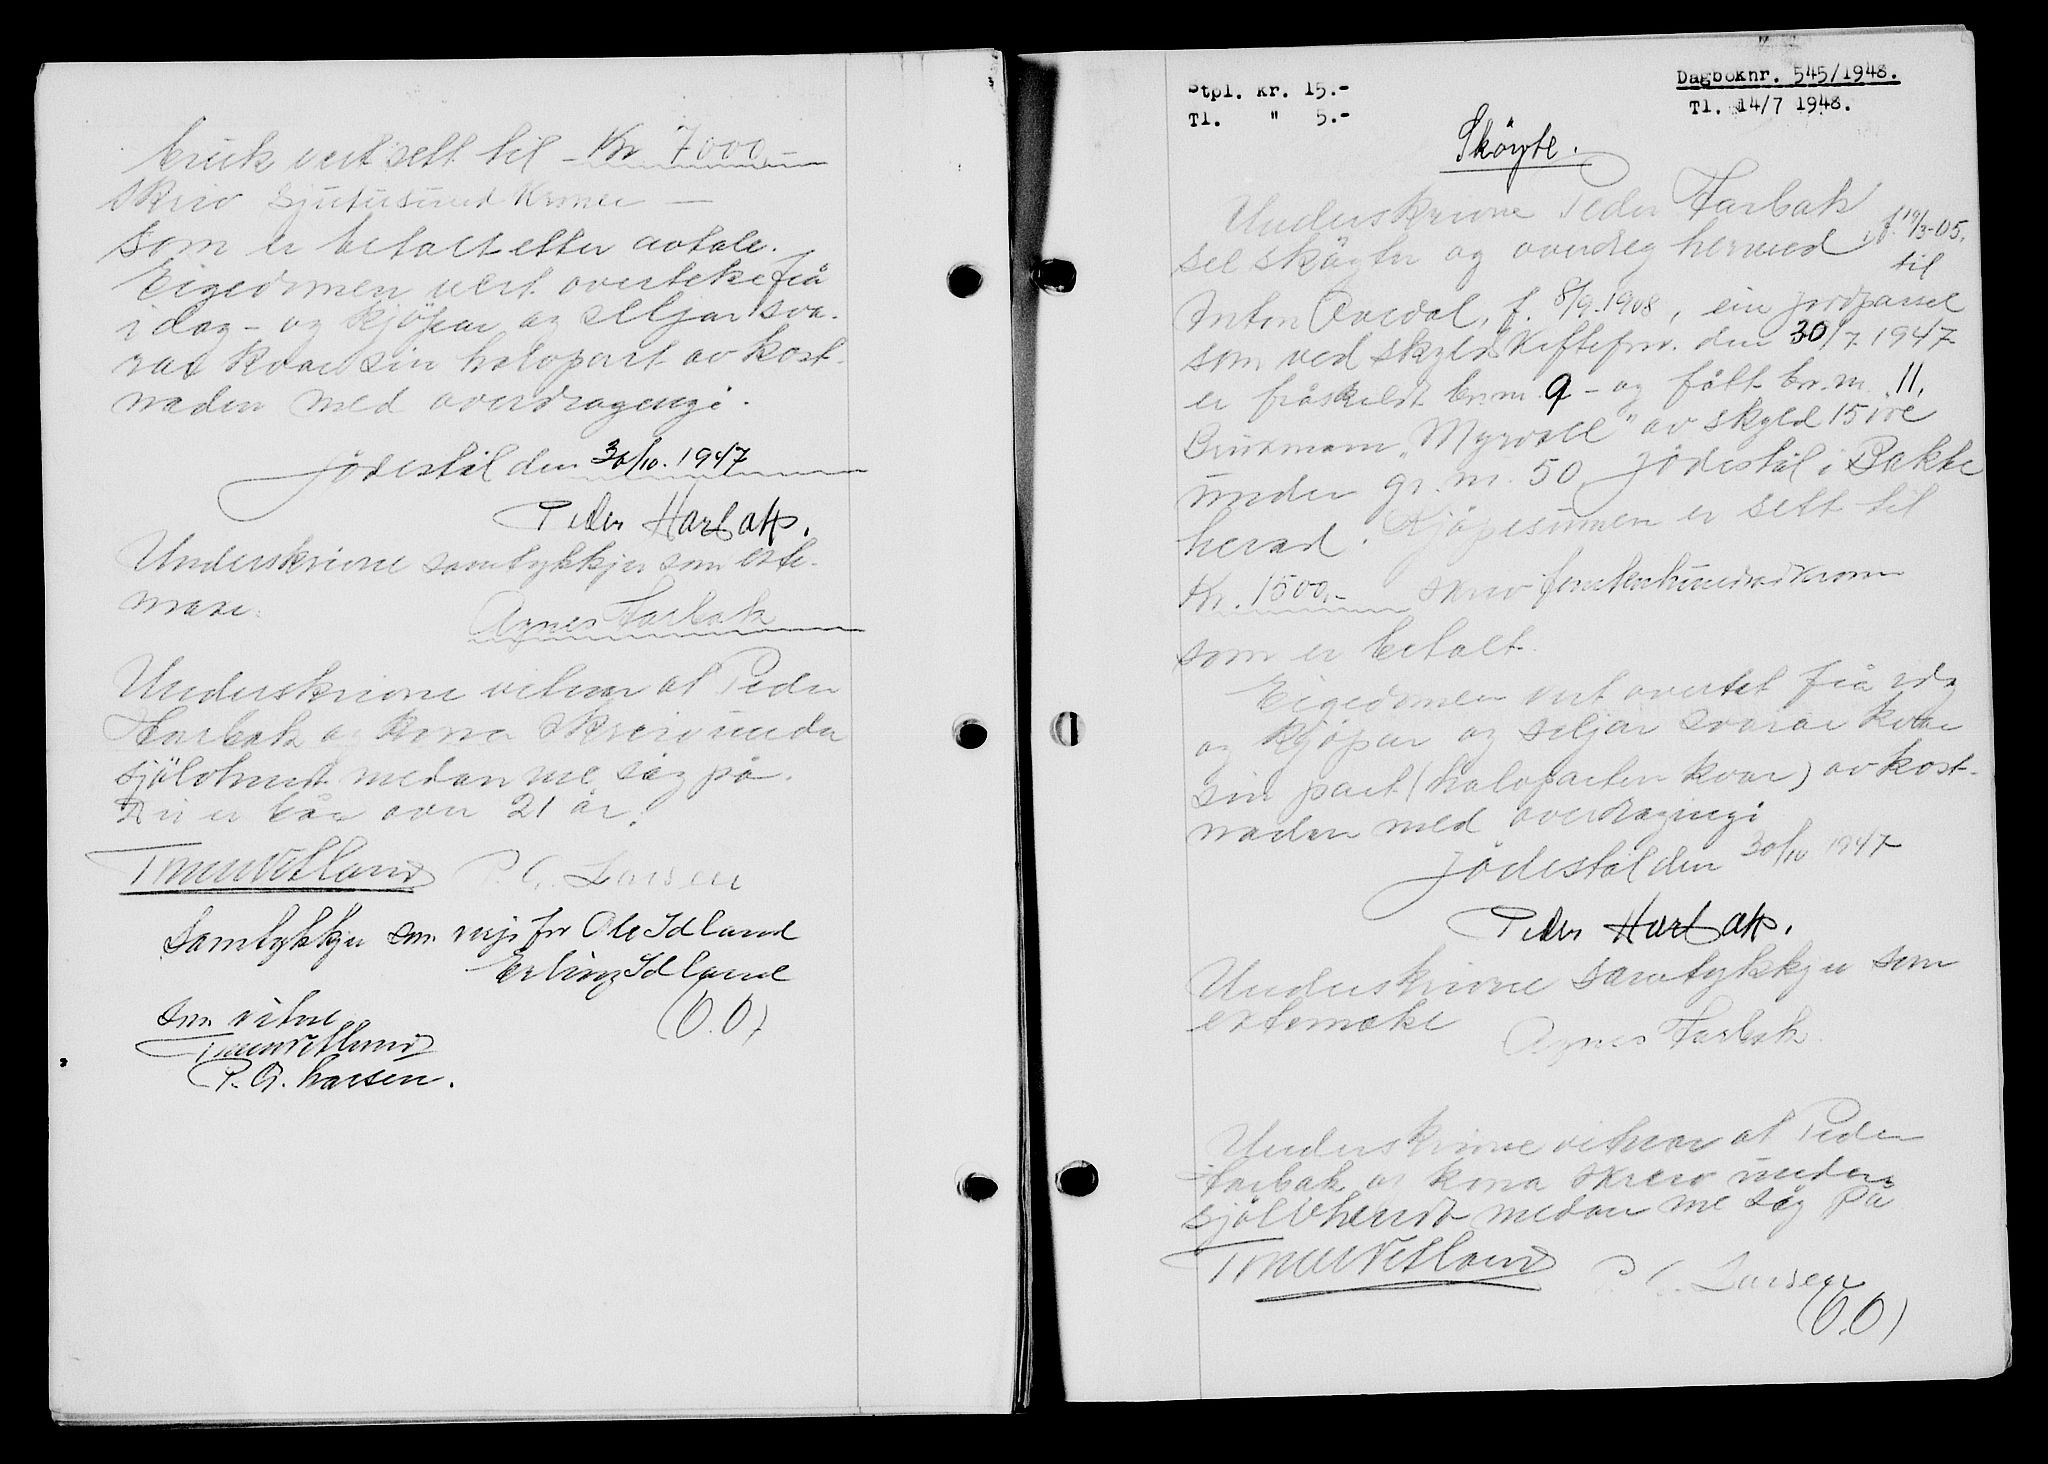 bruk vert sett til - Kr 7000,-
skriv sjutusund kroner —
som er betalt etter avtale.
Eigedomen vert overteke frå
i dag - og kjöpar og seljar sva-
rar kvar sin halvpart av kost-
naden med overdragingi.
Jödestöl den 30/10. 1947
Peder Harbakk.
Underskrivne samtykkjer som ekte-
make.
Agnes Harbak
Underskrivne vitnar at Peder
Harbak og kona skreiv under
sjölvhendt medan me såg på.
Dei er båe over 21 år.
Tønnes Netland P. G. Larsen
Samtykkjer som verje for Ole Idland
Erling Idland
(O.O)
som vitne
Tønnes Netland
P. G. Larsen.
Stpl. kr. 15.-
Tl. " 5.-
Dagboknr. 545/1948.
Tl. 14/7 1948.
Sköyte.
Underskrivne Peder Harbak f. 19/3-05.
sel sköyter og overdreg hermed til
Anton Ovedal, f. 8/9.1908, ein jordparsel
som ved skyldskifteforr. den 30/7 1947
er fråskildt br.nr. 9 - og fått br.nr. 11.
Bruksnamn "Myrvoll" av skyld 15 öre
under gr. nr. 50 Jödestöl i Bakke
herad. Kjöpesumen er sett til
Kr. 1500,- skriv femtenhundrad kroner
som er betalt.
Eigedomen vert overtet frå i dag
og kjöpar og seljar svarar kvar
sin part (halvparten kvar) av kost-
naden med overdragingi
Jödestöl den 30/10 1947
Peder Harbakk.
Underskrivne samtykkjer som
ektemake
Agnes Harbak.
Underskrivne vitnar at Peder
Harbak og kona skreiv under
sjölvhendt medan me såg på
Tønnes Netland P. G. Larsen
(O.O)